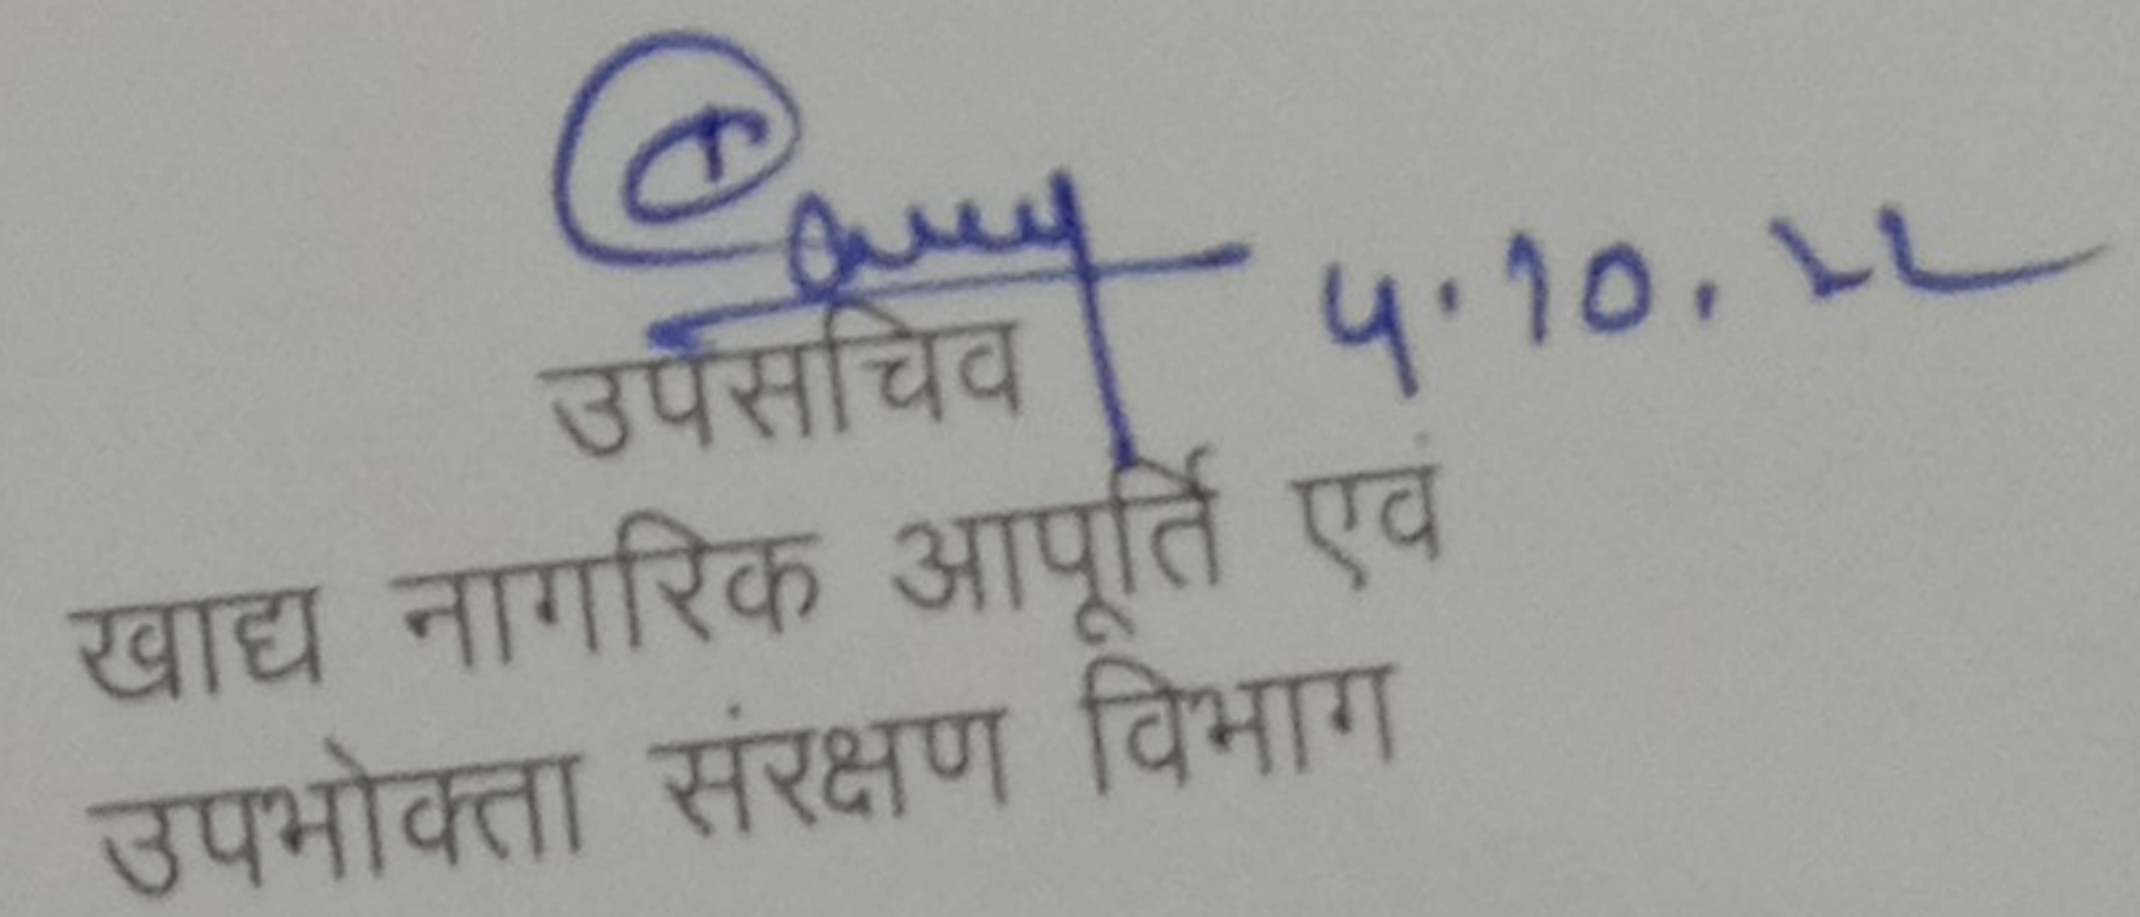 4.10.22
उपसचिव
खाद्य नागरिक आपूर्ति एवं
उपभोक्ता संरक्षण विभाग